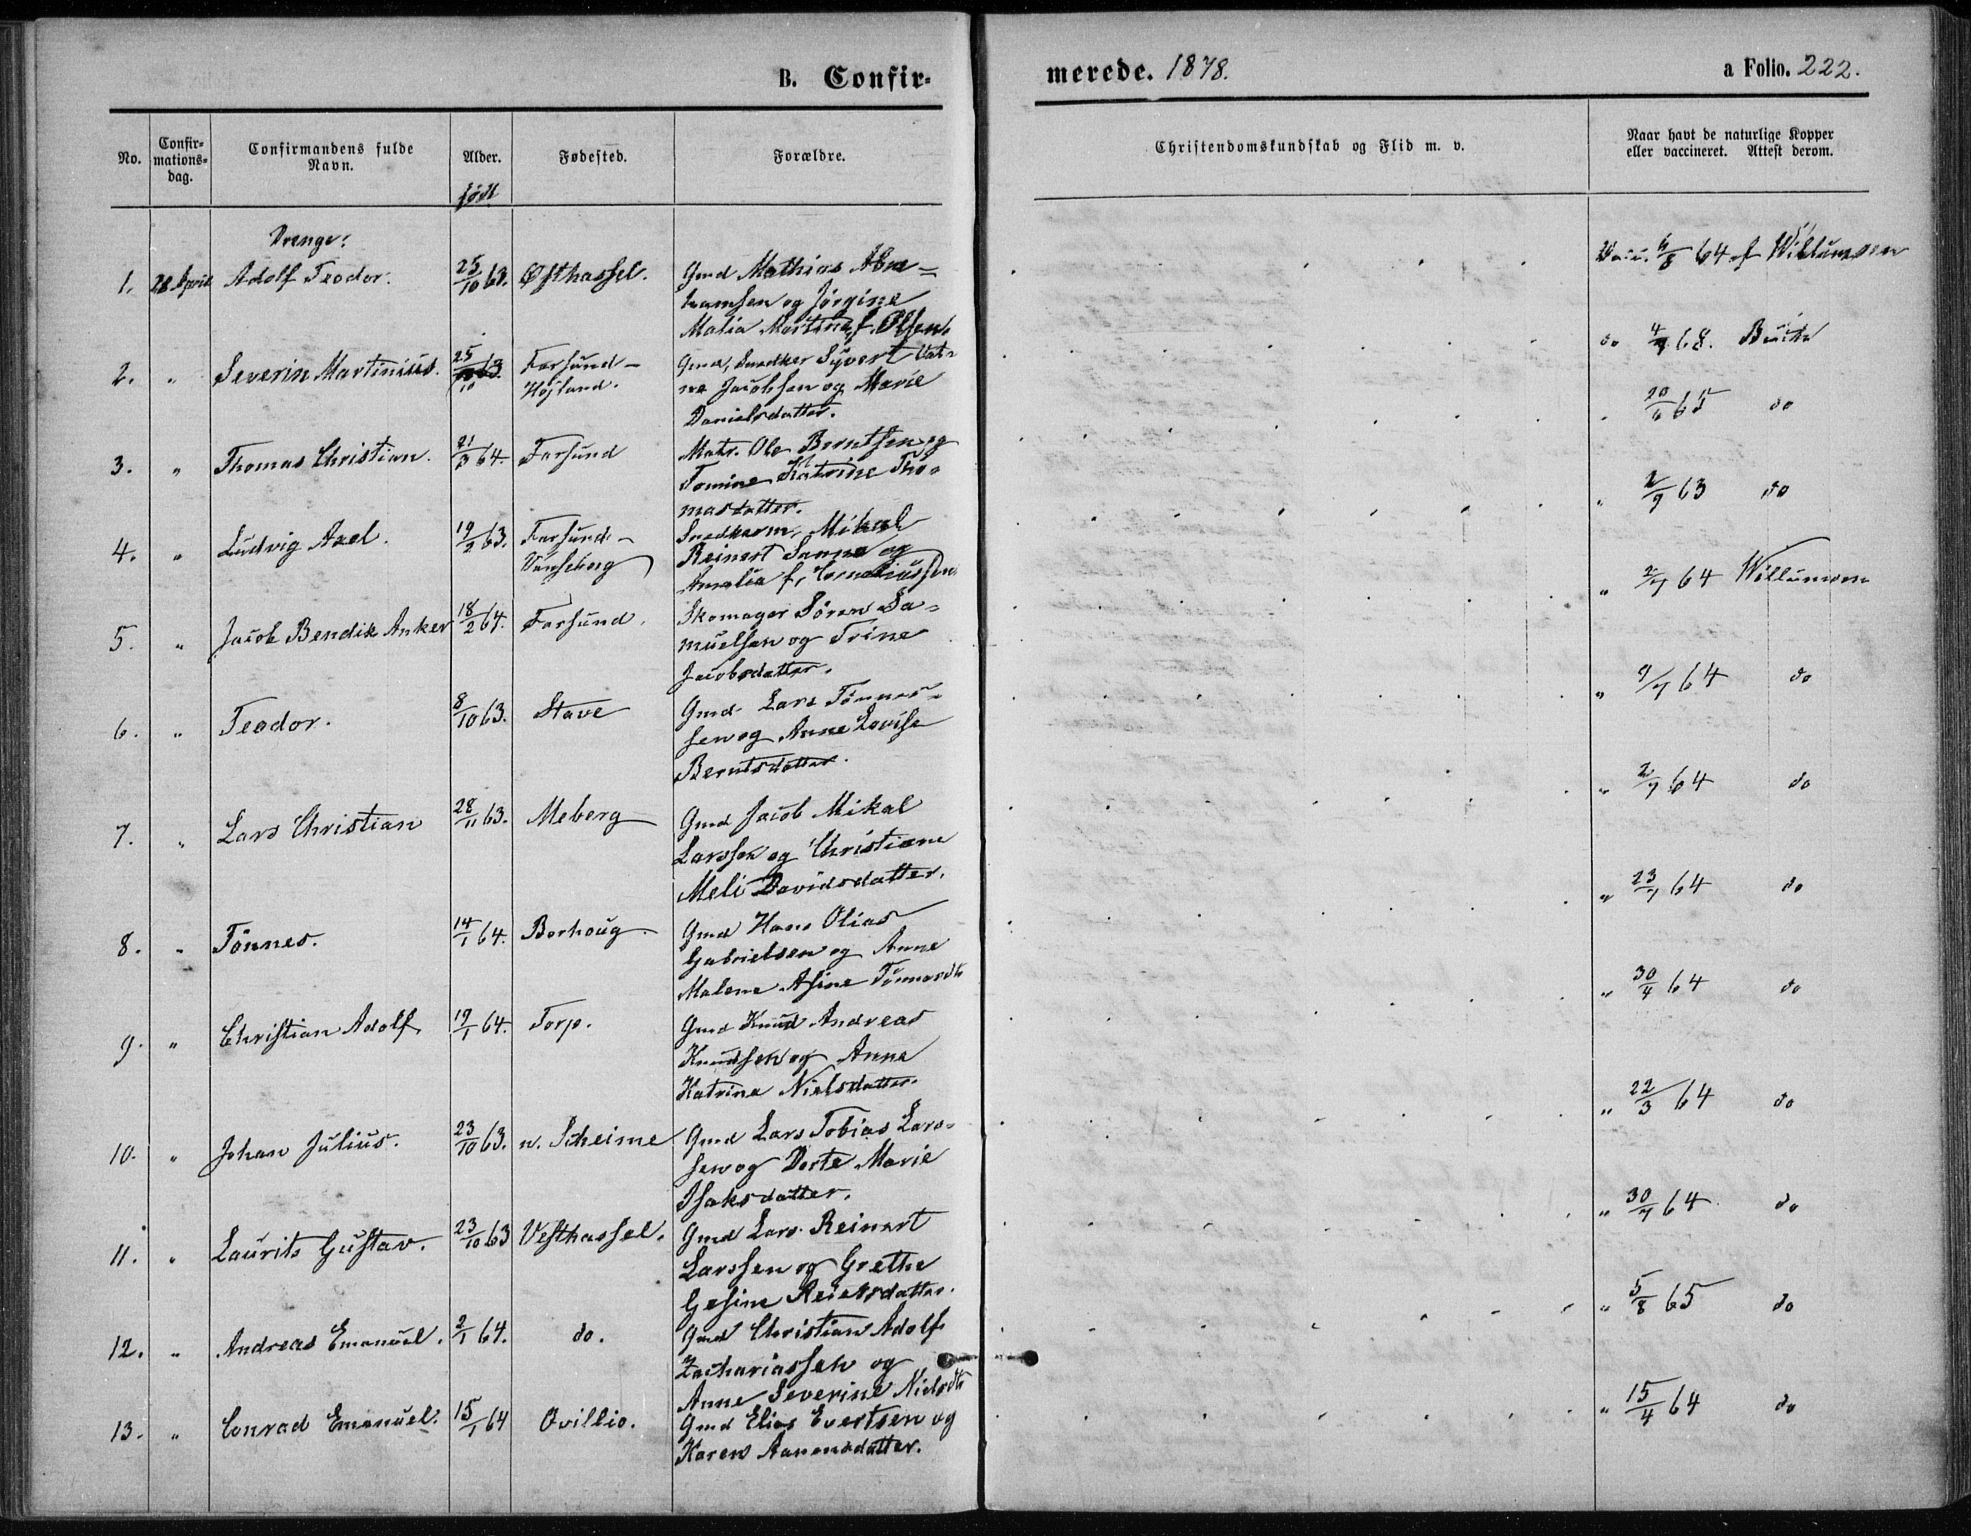 B. Confir-
merede. 1878.
a Folio. 222.
No.
Confir-
mations-
dag.
Confirmandens fulde
Navn.
Alder.
født
Fødested.
Forældre.
Christendomskundskab og Flid m. v.
Naar havt de naturlige Kopper
eller vaccineret. Attest derom.
Drenge:
1. 28 April Adolf Teodor. 25/10 63. Østhassel. Gmd Mathias Abra=
hamsen og Jörgine
Malia Martine f. Olsen.
6/8 64 af Willumsen
2. " Severin Martinius. 25/10 63 Farsund-
Højland.
Gmd, Snedker Syvert Vat-
ne Jacobsen og Marie
Danielsdatter.
do 68.
3. " Thomas Christian. 21/3 64. Farsund Matr. Ole Berntsen og
Tomine Katrine Tho-
masdatter.
20/6 65 do
4. " Ludvig Axel. 19/2 63. Farsund-
Vanseborg
Snedkerm. Mikal
Reinert Sanne og
Amalia f. Corneliussen
" 2/9 63 do
5. " Jacob Bendik Anker 18/2 64. Farsund. Skomager Sören Sa-
muelsen og Trine
Jacobsdatter.
" 2/7 64 Willumsen
6. " Teodor. 8/10 63. Stave Gmd Lars Tönnes-
sen og Anne Lovise
Berntsdatter.
" 9/7 64 do
7. " Lars Christian 28/11 63. Meberg Gmd Jacob Mikal
Larssen og Christiane
Meli Davidsdatter.
" 2/7 64 do
8. " Tönnes. 14/1 64. Borhoug. Gmd Hans Olias
Gabrielsen og Anne
Malene Asine Tönnesdtr
" 23/7 64 do
9. " Christian Adolf. 19/1 64. Torp. Gmd Knud Andreas
Knudsen og Anne
Katrine Nielsdatter.
" 30/4 64 do
10. " Johan Julius. 23/10 63. n. Skeime Gmd Lars Tobias Lars-
sen og Dorte Marie
Isaksdatter.
" 22/3 64 do
11. " Laurits Gustav. 23/10 63 Vesthassel. Gmd Lars Reinert
Larssen og Grethe
Gesine Reiersdatter.
" 30/7 64 do
12. " Andreas Emanuel. 2/1 64. do. Gmd Christian Adolf
Zachariassen og
Anne Severine Nielsdtr
" 5/8 65 do
13. " Conrad Emanuel. 15/1 64 Qvillio. Gmd Elias Evertsen og
Karen Aanensdatter.
" 15/4 64 do